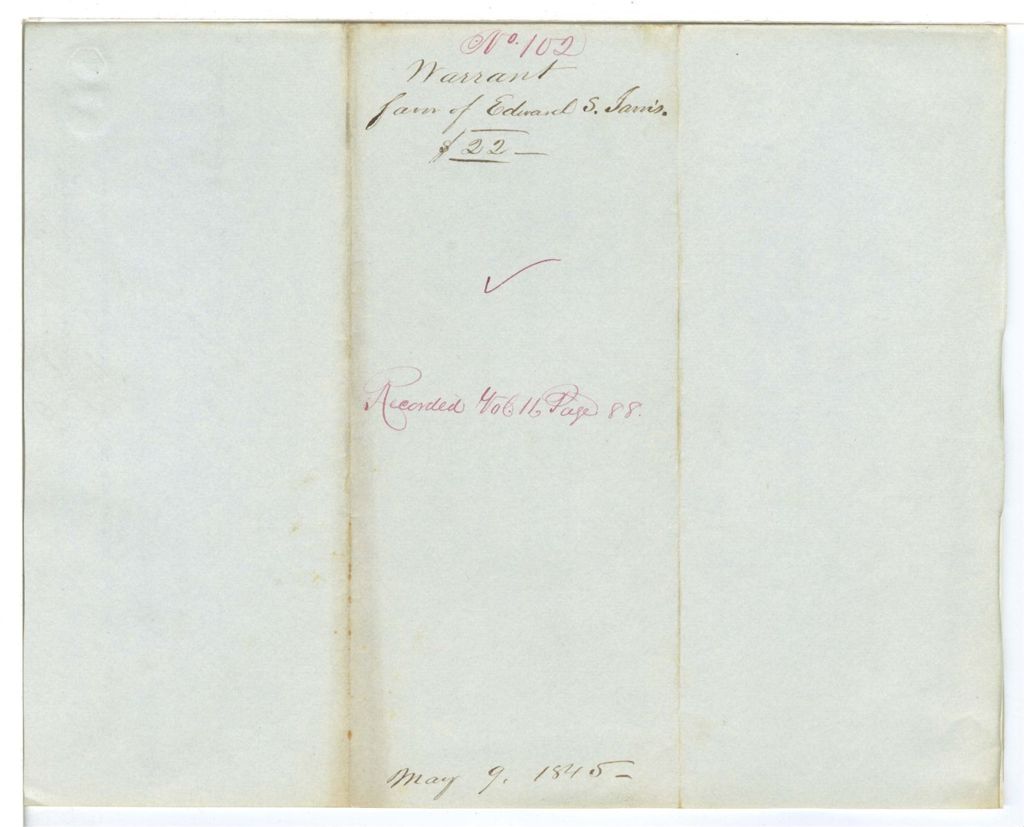 No. 102
Warrant
favr of Edward S. Jarvis.
$22 —
Recorded Vol 16 Page 88.
May 9. 1845 —